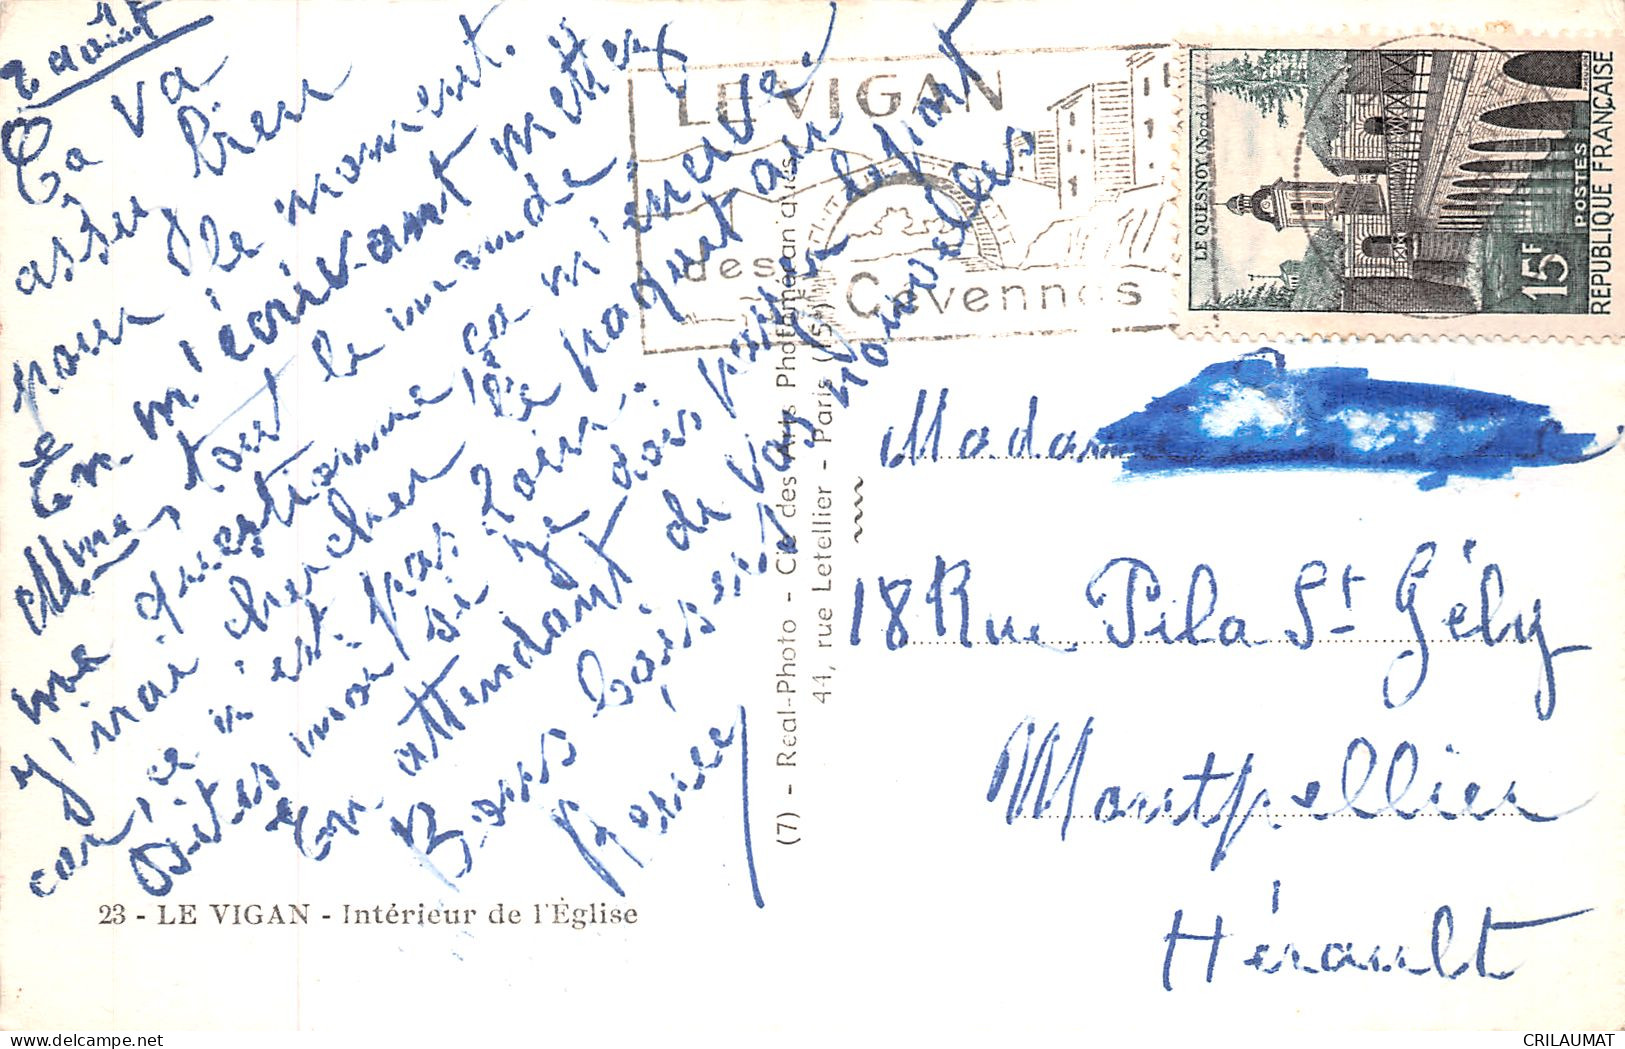 2 août
Ça va
assez bien
pour le moment.
En m'écrivant mettez
Mme, tout le monde
me questionne, ça m'énerve.
J'irai chercher le paquet
car, ce n'est pas loin.
Dites moi si je dois
En attendant de vos nouvelles
Bons baisers
Renée
23 - LE VIGAN - Intérieur de l'Église
(7) - Real-Photo - Cie des Arts Photoméchaniques
44, rue Letellier - Paris (15e)
LE VIGAN
des
Cévennes
LE QUESNOY (Nord)
15F
POSTES
REPUBLIQUE FRANÇAISE
Madame
18 Rue Pila St Gély
Montpellier
Hérault
CRILAUMAT